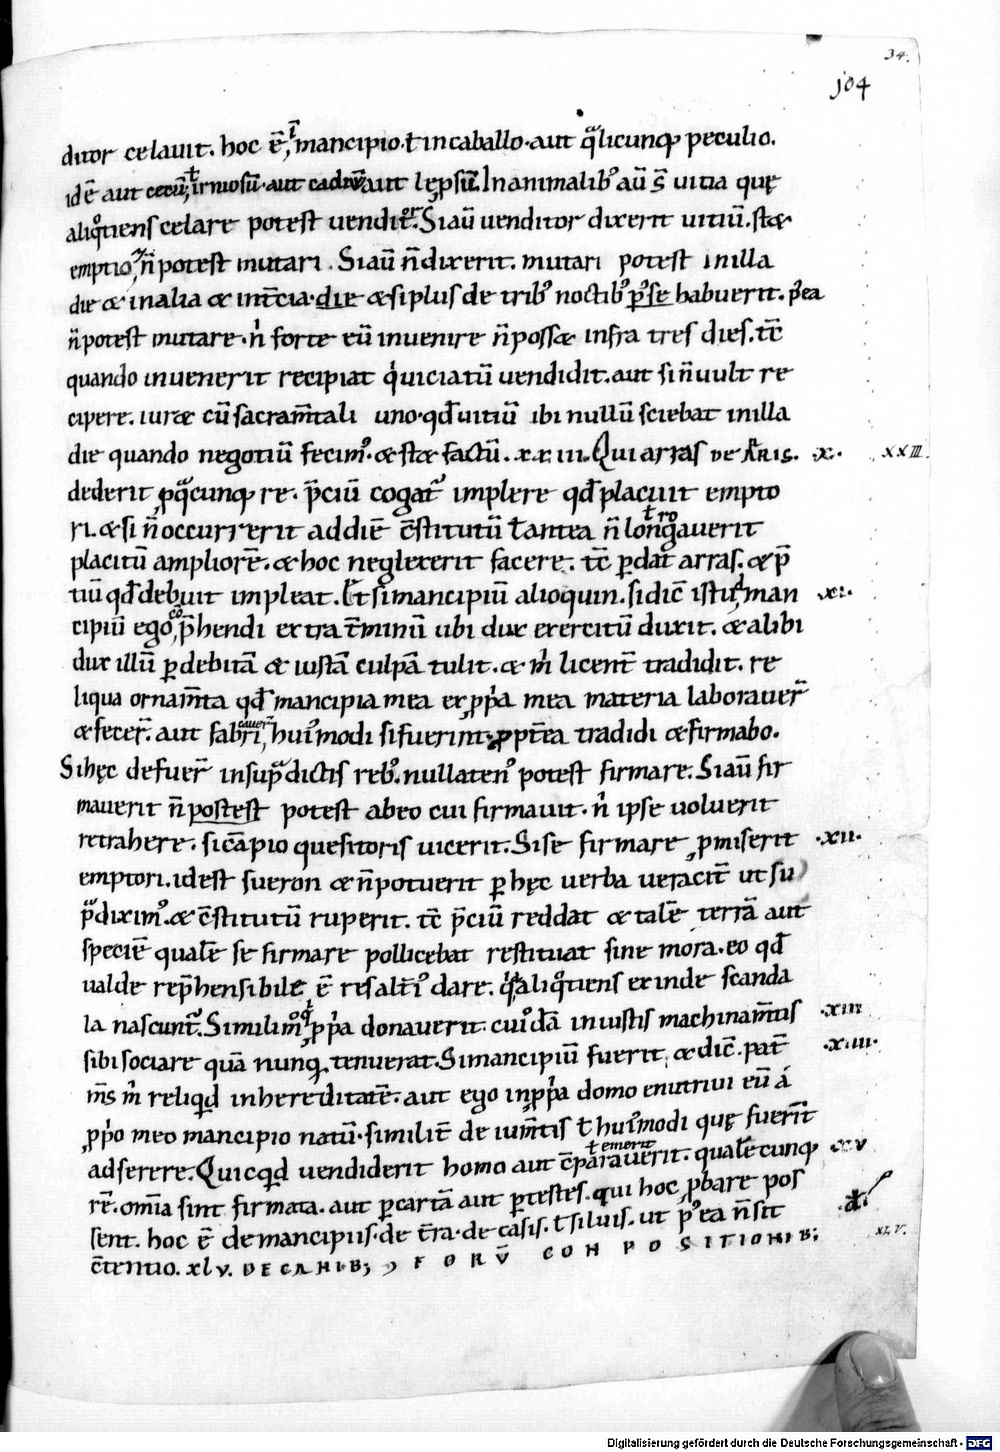 34.
104
ditor celauit. hoc ē, ī mancipio. ƚ in caballo. aut qͣlicunqꝫ peculio.
id ē aut cecū, ƚ irniosū. aut cadiuū aut lępsū. In animalibꝰ aū s̄ uitia quę
aliqͦtiens celare potest uenditͦr. Si aū uenditor dixerit uitiū. stæ
emptio, n̄ potest mutari. Si aū n̄ dixerit. mutari potest in illa
die & in alia & in t̄cia. die & si plus de tribꝰ noctibꝰ p̄ se habuerit. p̄ ea
n̄ potest mutare. nͥ forte eū inuenire n̄ possæ infra tres dies. tc̄
quando inuenerit recipiat qͥ uiciatū uendidit. aut si n̄ uult re
cipere. iuræ cū sacram̄tali uno. qd̄ uitiū ibi nullū sciebat in illa
die quando negotiū fecimꝰ. & stæ factū. xxiii. Qui arras DE ARRIS. .x. XXIII.
dederit ꝓ qͣcunqꝫ re. p̄ciū cogat᷑ implere qd̄ placuit empto
ri. & si n̄ occurrerit ad diē c̄stitutū ƚ antea n̄ longauerit ƚ ro
placitū ampliorē. & hoc neglexerit facere. tc̄ ꝑdat arras. & p̄
tiū qd̄ debuit impleat. Et si mancipiū alioquin. si dic̄ istud man .xi.
cipiū ego, co p̄hendi extra t̄minū ubi dux exercitū duxit. & alibi
dux illū ꝑ debitā & iustā culpā tulit. & mͥ licent̄ tradidit. re
liqua ornam̄ta qd̄ mancipia mea ex ꝓpͥa mea materia laborauer̄
& fecer̄. aut fabri, cauer̄ huiꝰmodi si fuerint. ꝓpt̄ea tradidi & firmabo.
Si hęc defuer̄ in supͣdictis rebꝰ. nullatenꝰ potest firmare. Si aū fir
mauerit n̄ postest potest ab eo cui firmauit. nͥ ipse uoluerit
retrahere. si cāpio quesitoris uicerit. Si se firmare ꝓmiserit .xii.
emptori. id est sueron & n̄ potuerit ꝑ hęc uerba ueracit̄ ut su
pͣ diximꝰ. & c̄stitutū ruperit. tc̄ p̄ciū reddat & talē terrā aut
speciē qualē se firmare pollicebat restituat sine mora. eo qd̄
ualde rep̄hensibile ē res alt̄iꝰ dare. qͥa aliqͦtiens exinde scanda
la nascunt᷑. Similimͦ, qƚ ꝓpͥa donauerit. cuiꝰdā iniustis machinam̄tis .xiii.
sibi sociare quā nunqꝫ tenuerat. Si mancipiū fuerit, & dic̄. pat̄ .xiiii.
m̄s mͥ reliqͥd in hereditatē. aut ego in ꝓpͥa domo enutriui eū á
ꝓpͥo meo mancipio natū. similit̄ de ium̄tis ƚ huiꝰmodi quę fuerīt
adserere. Quicqͥd uendiderit homo aut c̄parauerit. ƚ emerit qualēcunqꝫ .xv
rē. om̄ia sint firmata. aut ꝑ cartā aut ꝑ testes. qui hoc ꝓbare pos
sent. hoc ē de mancipiis. de t̄ra. de casis. ƚ siluis. ut p̄ ea n̄ sit
c̄tentio. xlv. DE CANIB; ꝯ FORŪ CONPOSITIONIB; XLV.
Digitalisierung gefördert durch die Deutsche Forschungsgemeinschaft - DFG